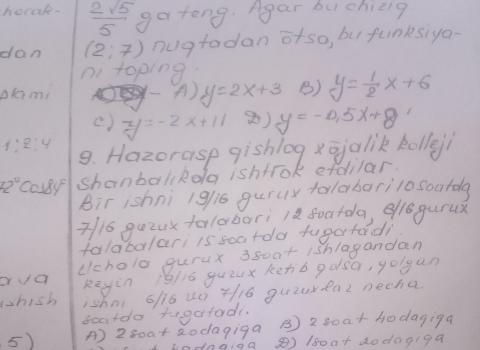 2√5/5 ga teng. Agar bu chiziq
(2; 7) nuqtadan ōtsa, bu funksiya-
dan ni toping.
A) y=2x+3 B) y=1/2x+6
C) y=-2x+11 D) y=-0,5x+8
1:2:4
9. Hazorasp qishloq xōjalik kolleji
shanbalikda ishtrok etdilar.
Bir ishni 19/16 gurux talabari 10 soatda
7/16 gurux talabari 12 soatda, 6/16 gurux
talabalari 15 soatda tugatadi.
Uchola gurux 3 soat ishlagandan
keyin 19/16 gurux ketib qolsa, yolgun
ishni 6/16 va 7/16 guruxlar necha
soatda tugatadi.
A) 2 soat 20 daqiqa B) 2 soat 40 daqiqa
D) 1 soat 20 daqiqa